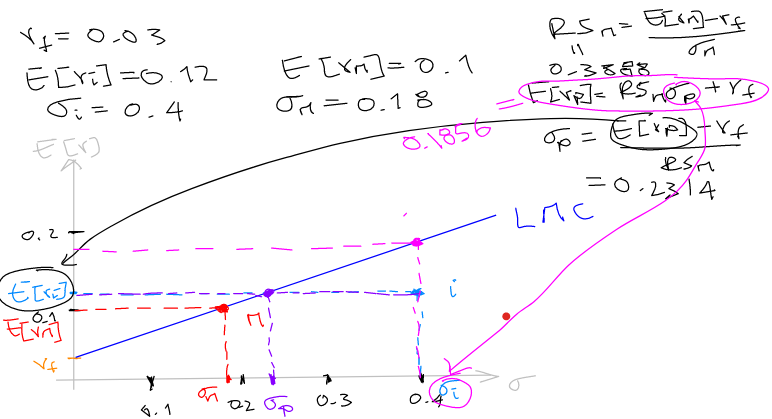 r_f = 0.03
E[r_i] = 0.12
σ_i = 0.4
E[r_M] = 0.1
σ_M = 0.18
RS_M = (E[r_M] - r_f) / σ_M
"
0.3888
= E[r_p] = RS_M σ_p + r_f
0.1856
σ_p = (E[r_p] - r_f) / RS_M
= 0.2314
E[r]
LMC
0.2
E[r_i]
i
0.1
E[r_M]
M
r_f
0.1
σ_M
0.2
σ_p
0.3
0.4
σ_i
σ